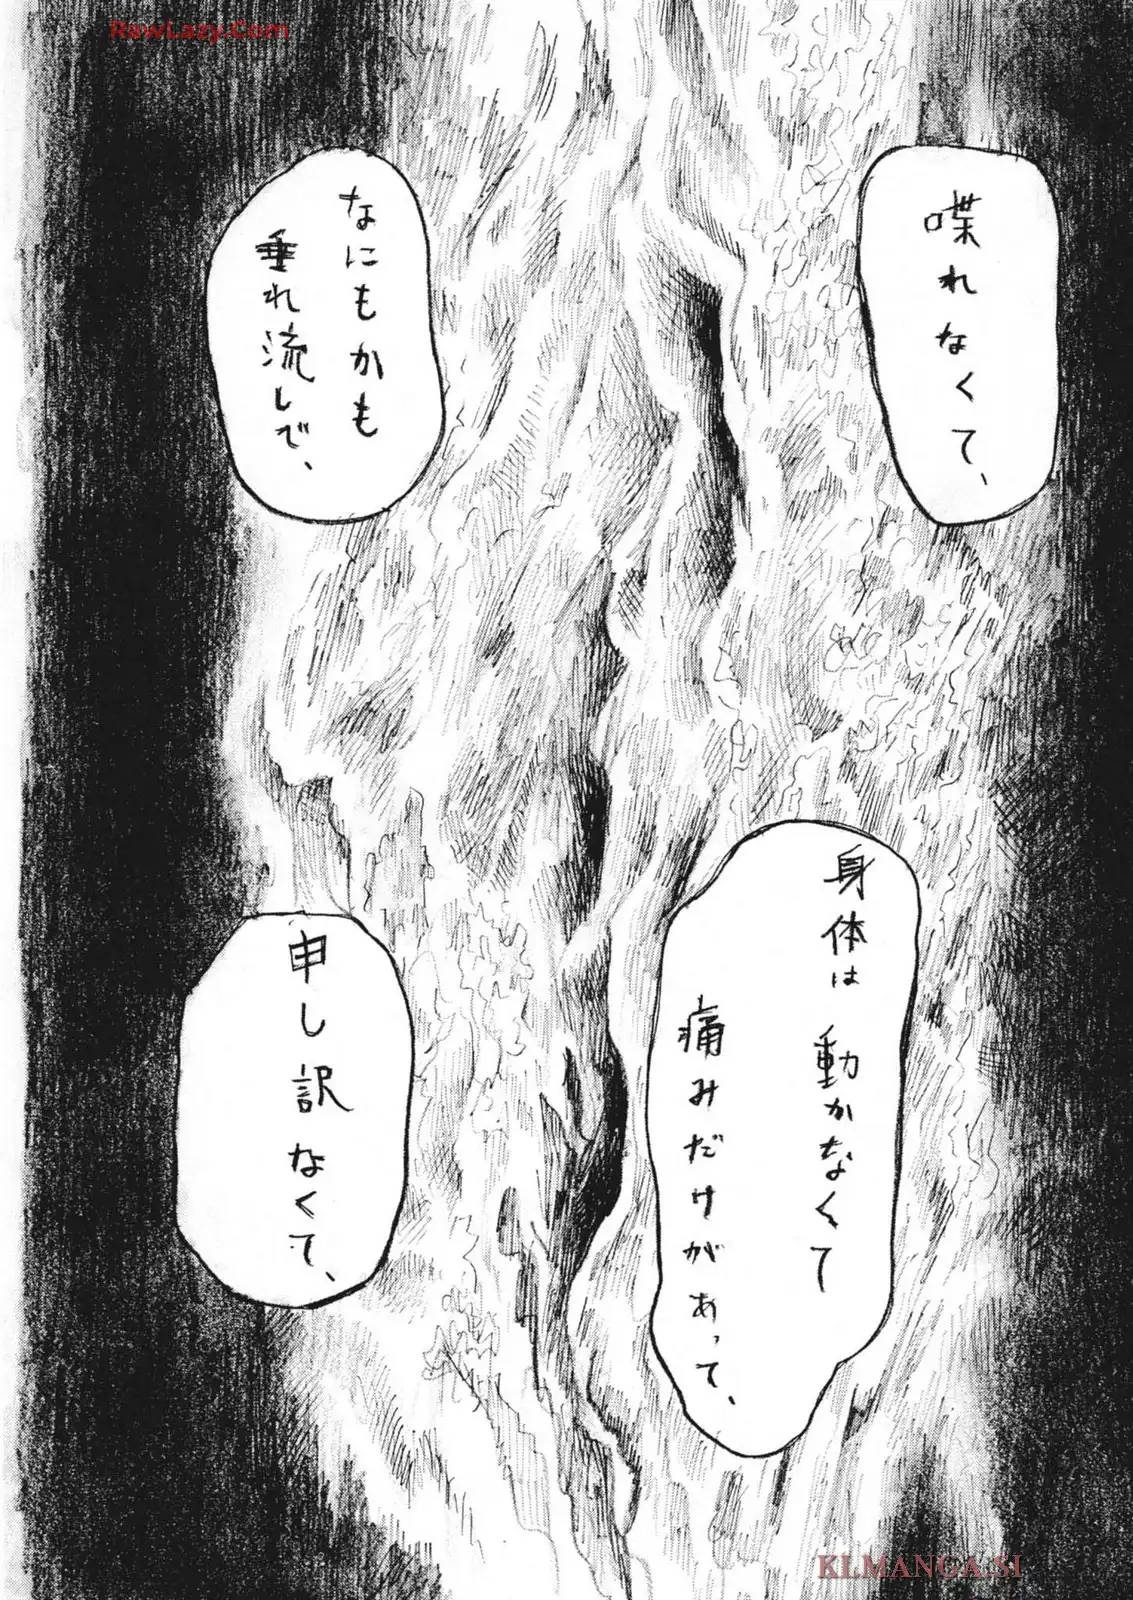 RawLazy.Com
喋れなくて、
なにもかも
垂れ流しで、
身体は動かなくて
痛みだけがあって、
申し訳なくて、
KLMANGA.SI